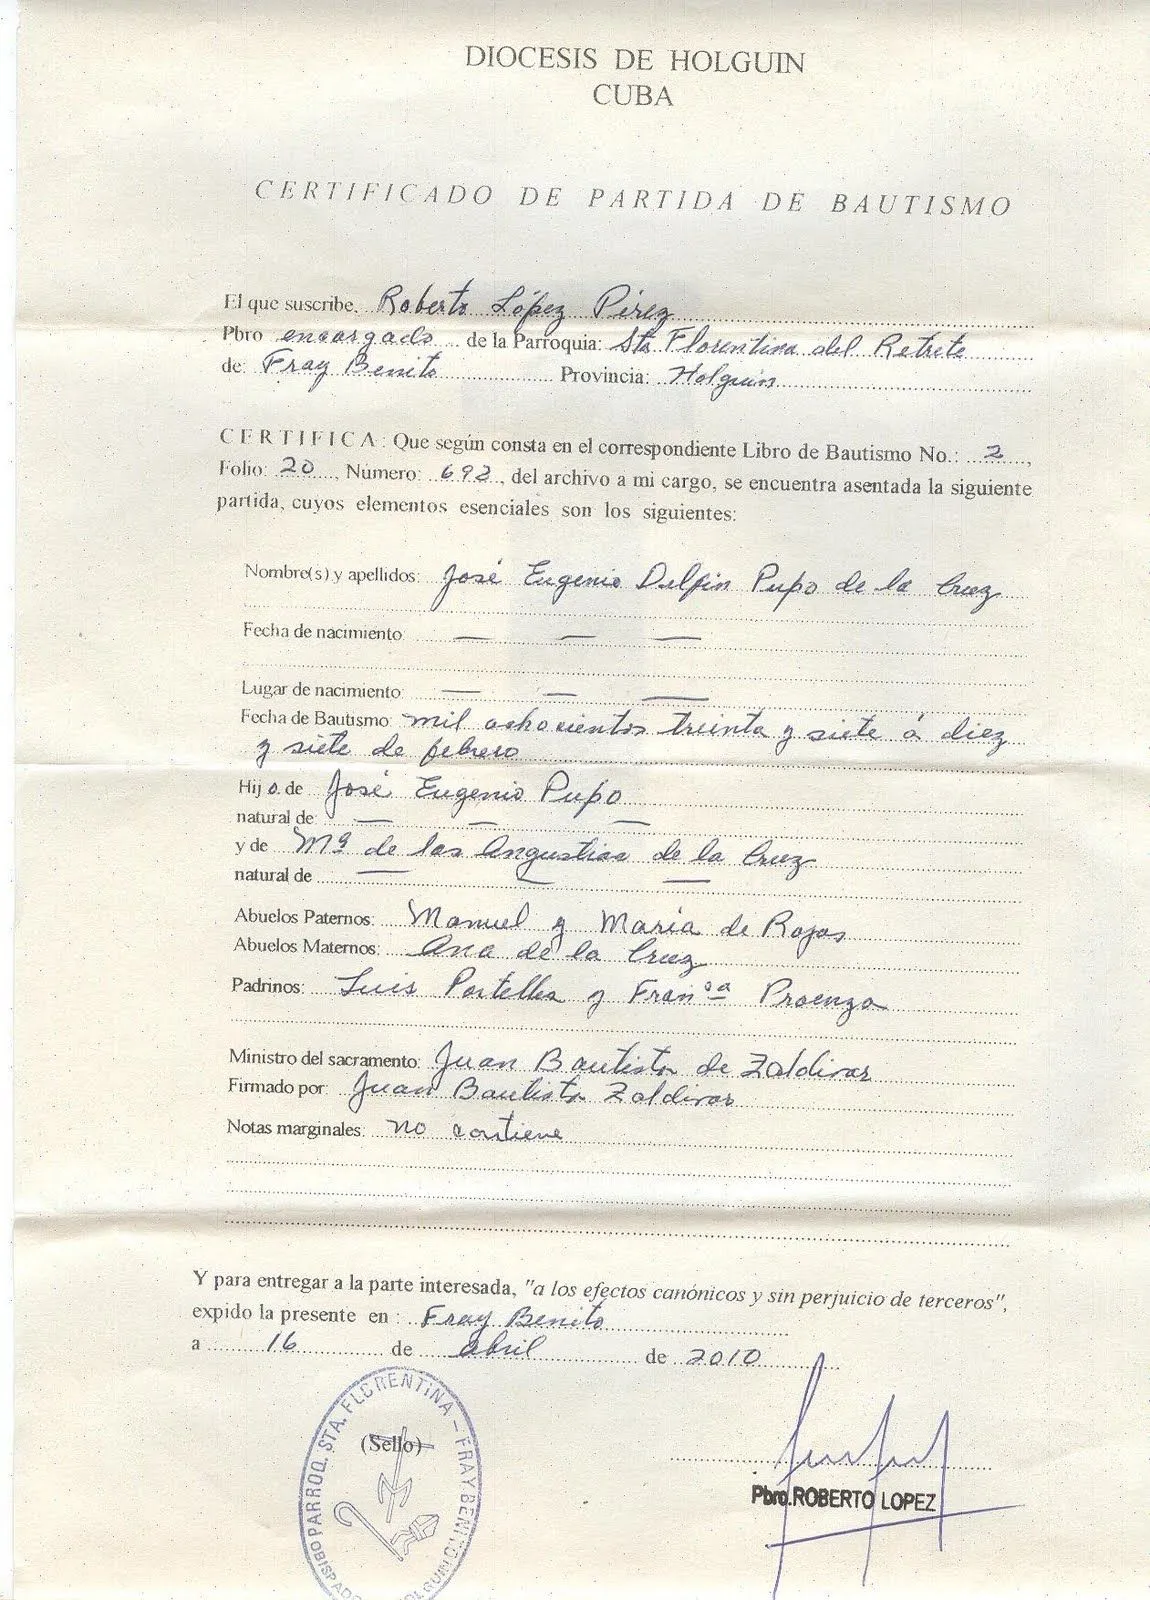 DIOCESIS DE HOLGUIN
CUBA
CERTIFICADO DE PARTIDA DE BAUTISMO
El que suscribe, Roberto López Pérez
Pbro encargado de la Parroquia: Sta Florentina del Retrete
de: Fray Benito Provincia: Holguín
CERTIFICA: Que según consta en el correspondiente Libro de Bautismo No.: 2,
Folio: 20, Número: 692, del archivo a mi cargo, se encuentra asentada la siguiente
partida, cuyos elementos esenciales son los siguientes:
Nombre(s) y apellidos: José Eugenio Delfin Pupo de la Cruz
Fecha de nacimiento: — — —
Lugar de nacimiento: — — —
Fecha de Bautismo: mil ochocientos treinta y siete á diez
y siete de febrero
Hijo de José Eugenio Pupo
natural de: — — —
y de Mª de las Angustias de la Cruz
natural de — — —
Abuelos Paternos: Manuel y María de Rojas
Abuelos Maternos: Ana de la Cruz
Padrinos: Luis Portelles y Franᶜᵃ Proenza
Ministro del sacramento: Juan Bautista de Zaldivar
Firmado por: Juan Bautista Zaldivar
Notas marginales: no contiene
Y para entregar a la parte interesada, "a los efectos canónicos y sin perjuicio de terceros",
expido la presente en : Fray Benito
a 16 de abril de 2010
(Sello)
PARROQ. STA. FLORENTINA – FRAY BENITO
OBISPADO HOLGUIN
Pbro. ROBERTO LOPEZ